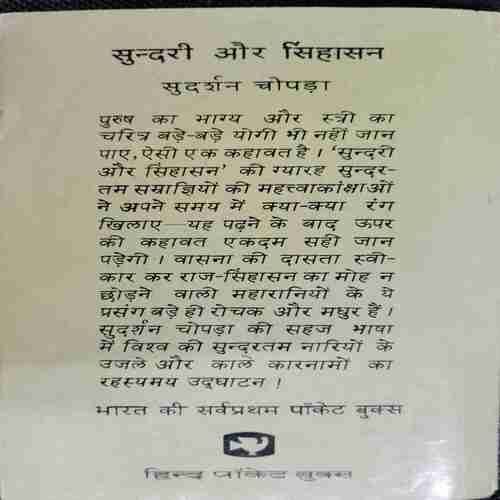 सुन्दरी और सिंहासन
सुदर्शन चोपड़ा
पुरुष का भाग्य और स्त्री का
चरित्र बड़े-बड़े योगी भी नहीं जान
पाए, ऐसी एक कहावत है। 'सुन्दरी
और सिंहासन' की ग्यारह सुन्दर-
तम सम्राज्ञियों की महत्त्वाकांक्षाओं
ने अपने समय में क्या-क्या रंग
खिलाए—यह पढ़ने के बाद ऊपर
की कहावत एकदम सही जान
पड़ेगी। वासना की दासता स्वी-
कार कर राज-सिंहासन का मोह न
छोड़ने वाली महारानियों के ये
प्रसंग बड़े ही रोचक और मधुर हैं।
सुदर्शन चोपड़ा की सहज भाषा
में विश्व की सुन्दरतम नारियों के
उजले और काले कारनामों का
रहस्यमय उद्घाटन!
भारत की सर्वप्रथम पॉकेट बुक्स
हिन्द पॉकेट बुक्स